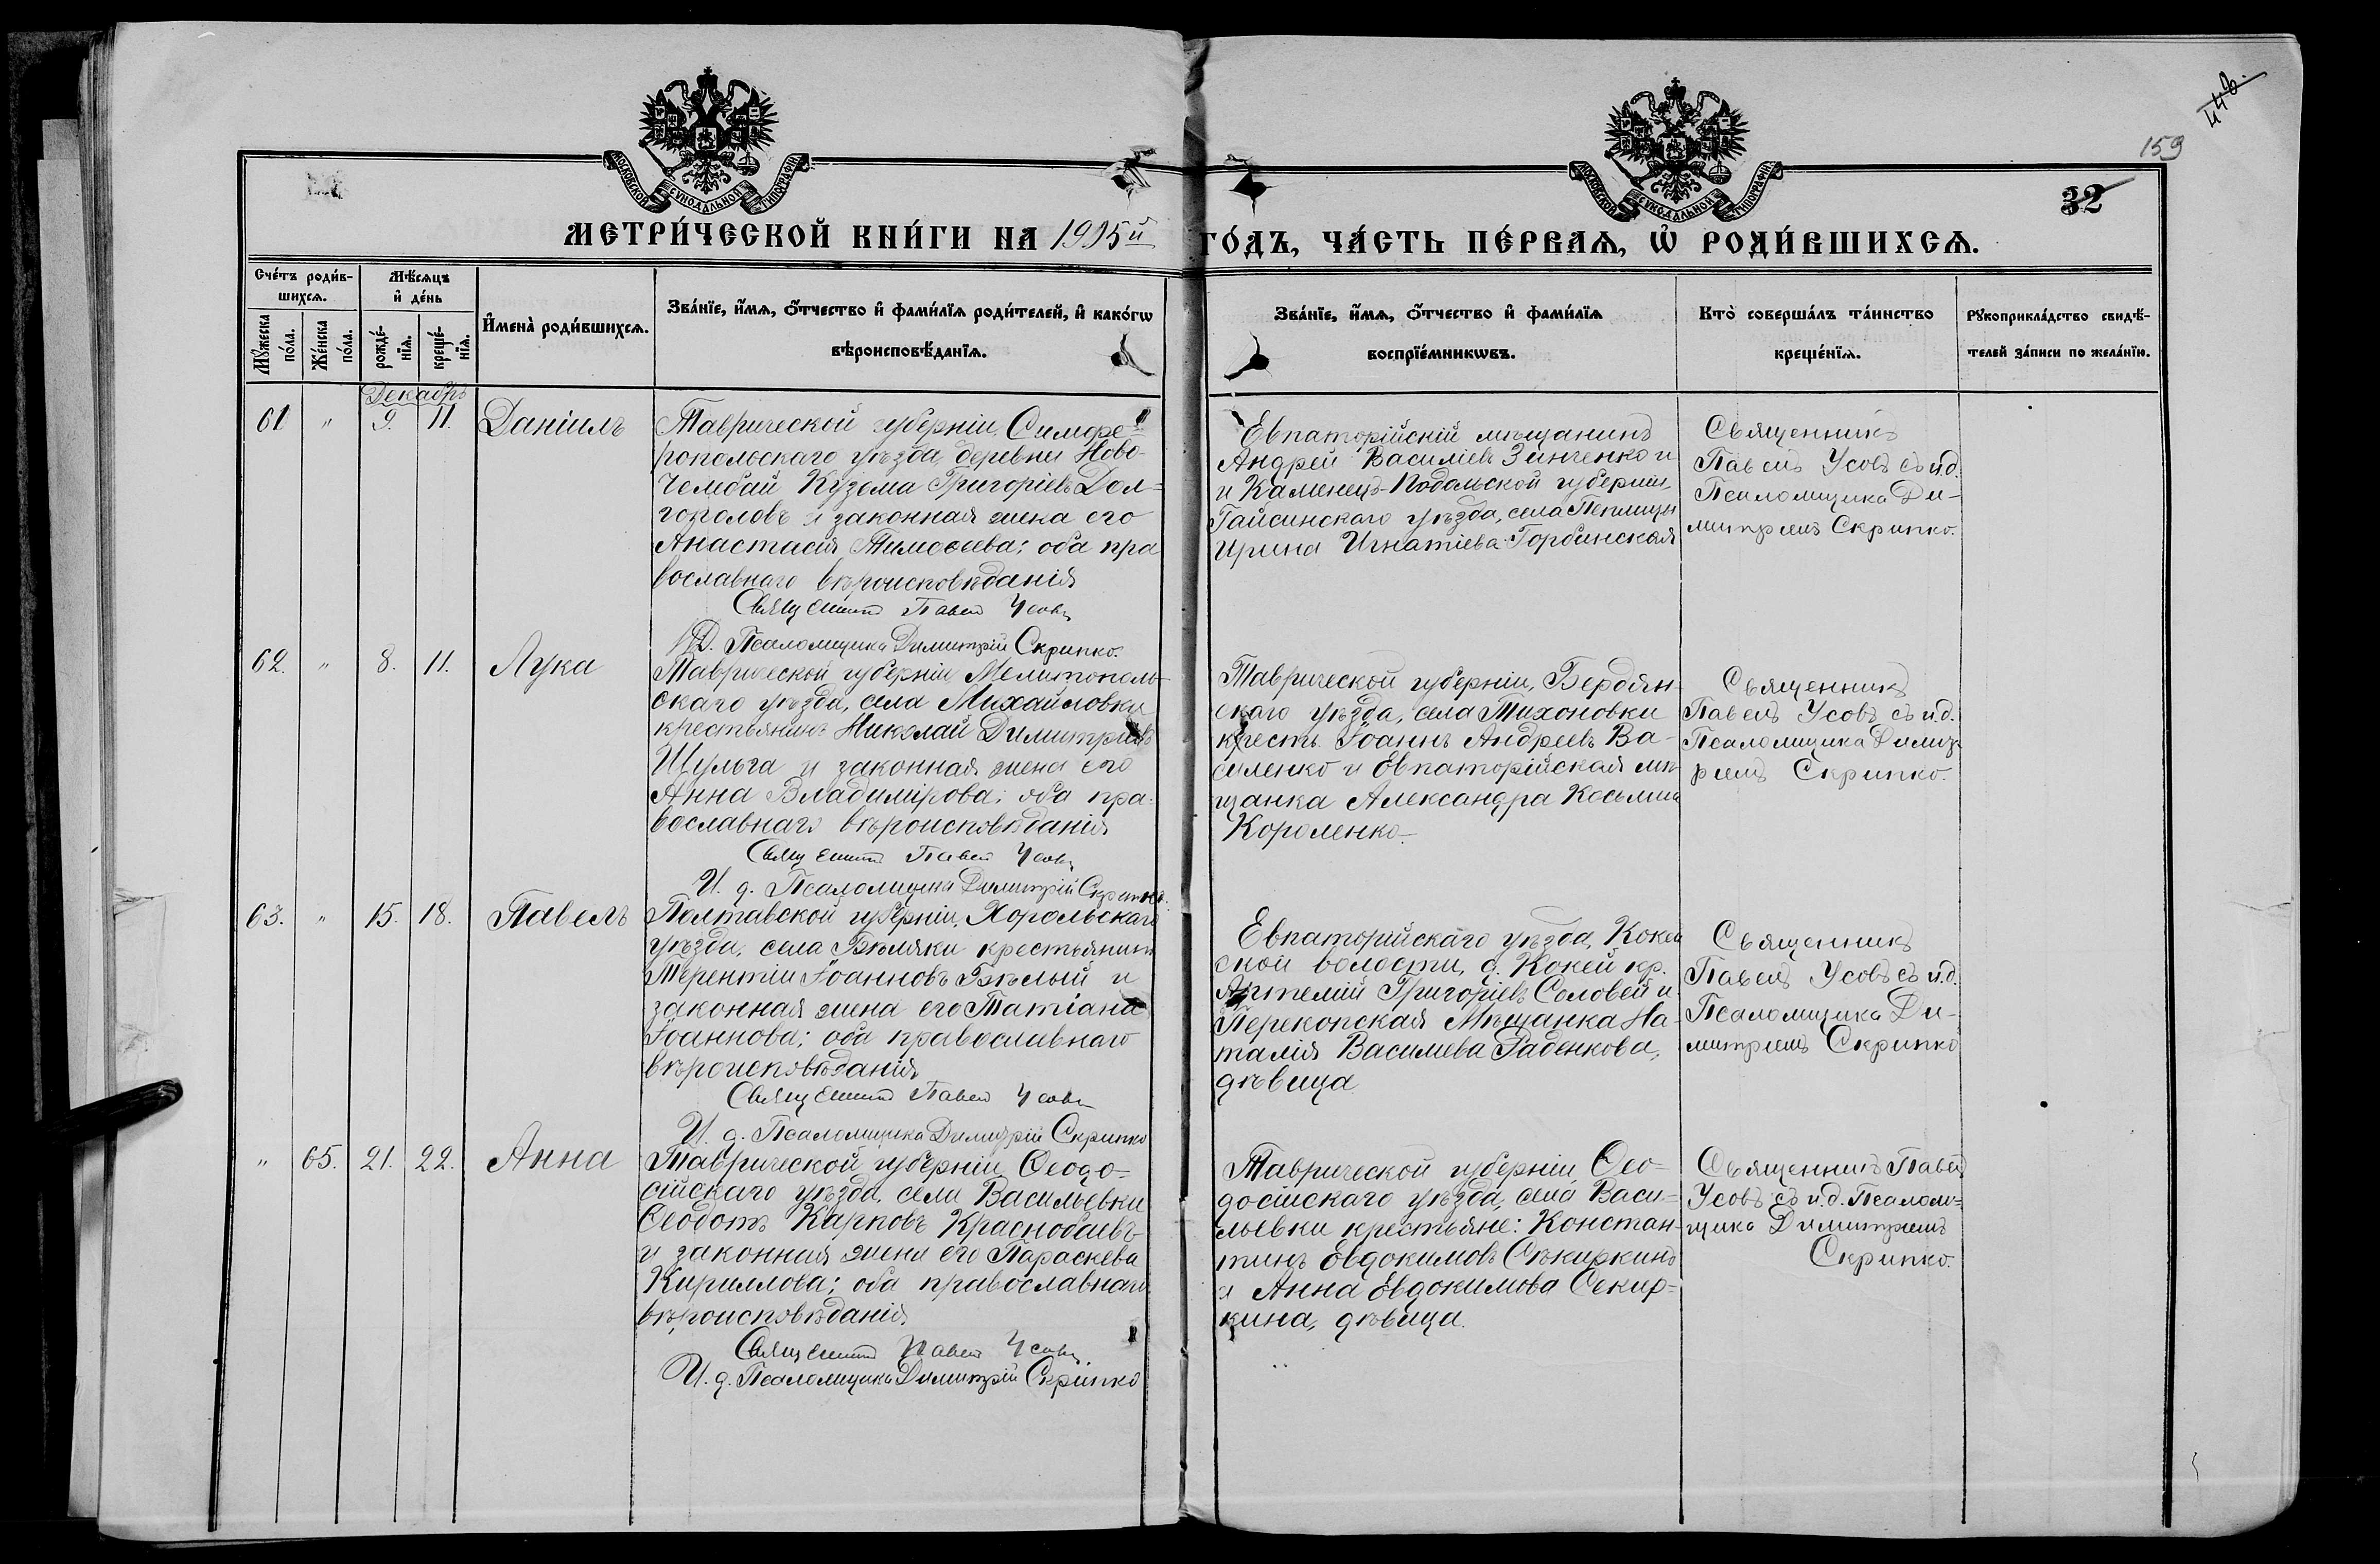 440.
159
32
МОСКОВСКОЙ СѴНОДАЛЬНОЙ ТИПОГРАФІИ
МОСКОВСКОЙ СѴНОДАЛЬНОЙ ТИПОГРАФІИ
МЕТРИ́ЧЕСКОЙ КНИ́ГИ НА 1915й ГО́ДЪ, ЧА́СТЬ ПЕ́РВАѦ, Ѡ҆ РОДИ́ВШИХСѦ.
Сче́тъ роди́в-
шихсѧ.
Мꙋ́жеска
по́ла.
Же́нска
по́ла.
Мѣ́сѧцъ
и҆ де́нь
рожде́-
нїѧ.
креще́-
нїѧ.
И҆мена̀ роди́вшихсѧ.
Зва́нїе, и҆́мѧ, ѻ҆́тчество и҆ фами́лїѧ роди́телей, и҆ како́гѡ
вѣроисповѣ́данїѧ.
Зва́нїе, и҆́мѧ, ѻ҆́тчество и҆ фами́лїѧ
воспрїе́мникѡвъ.
Кто̀ соверша́лъ та́инство
креще́нїѧ.
Рꙋкоприкла́дство свидѣ́-
телей за́писи по жела́нїю.
Декабрь
61 " 9. 11. Даніилъ
Таврической губерніи Симфе-
ропольскаго уѣзда, деревни Ново-
Челебай Кузема Григоріевъ Дол=
гополовъ и законная жена его
Анастасія Тимоѳеева; оба пра
вославнаго вѣроисповѣданія
Священникъ Павелъ Усовъ
И.Д. Псаломщика Димитрій Скрипко.
Евпаторійскій мѣщанинъ
Андрей Василіевъ Зинченко и
и Каменецъ-Подольской губерніи,
Гайсинскаго уѣзда, села
Ирина Игнатіева Горбинская
Священникъ
Павелъ Усовъ съ и.д.
Псаломщика Ди-
митріемъ Скрипко.
62. " 8. 11. Лука
Таврической губерніи Мелитополь-
скаго уѣзда, села Михайловки
крестьянинъ Николай Димитріевъ
Шульга и законная жена его
Анна Владимірова; оба пра-
вославнаго вѣроисповѣданія
Священникъ Павелъ Усовъ
И. д. Псаломщика Димитрій Скрипко.
Таврической губерніи, Бердян-
скаго уѣзда, села Тихоновки
кресть. Іоаннъ Андреевъ Ва-
силенко и Евпаторійская мѣ-
щанка Александра Косьмина
Короленко.
Священникъ
Павелъ Усовъ съ и.д.
Псаломщика Димит-
ріемъ Скрипко.
63. " 15. 18. Павелъ
Полтавской губерніи, Хорольскаго
уѣзда, села Бѣляки крестьянинъ
Терентій Іоанновъ Бѣлый и
законная жена его Татіана
Іоаннова; оба православнаго
вѣроисповѣданія
Священникъ Павелъ Усовъ
И. д. Псаломщика Димитрій Скрипко
Евпаторійскаго уѣзда, Кокей
ской волости, д. Кокей кр.
Артемій Григоріевъ Соловей и
Перекопская Мѣщанка На-
талія Василіева Раденкова,
дѣвица
Священникъ
Павелъ Усовъ съ и.д.
Псаломщика Ди-
митріемъ Скрипко
" 65. 21. 22. Анна
Таврической губерніи, Ѳеодо-
сійскаго уѣзда, села Васильевки
Ѳеодотъ Карповъ Краснобаевъ
и законная жена его Параскева
Кириллова; оба православнаго
вѣроисповѣданія
Священникъ Павелъ Усовъ
И. д. Псаломщика Димитрій Скрипко
Таврической губерніи, Ѳео=
досійскаго уѣзда, села Васи=
льевки крестьяне: Констан-
тинъ Евдокимовъ Сѣкиркинъ
и Анна Евдокимова Секир=
кина, дѣвица.
Священникъ Павелъ
Усовъ съ и.д. Псалом=
щика Димитріемъ
Скрипко.